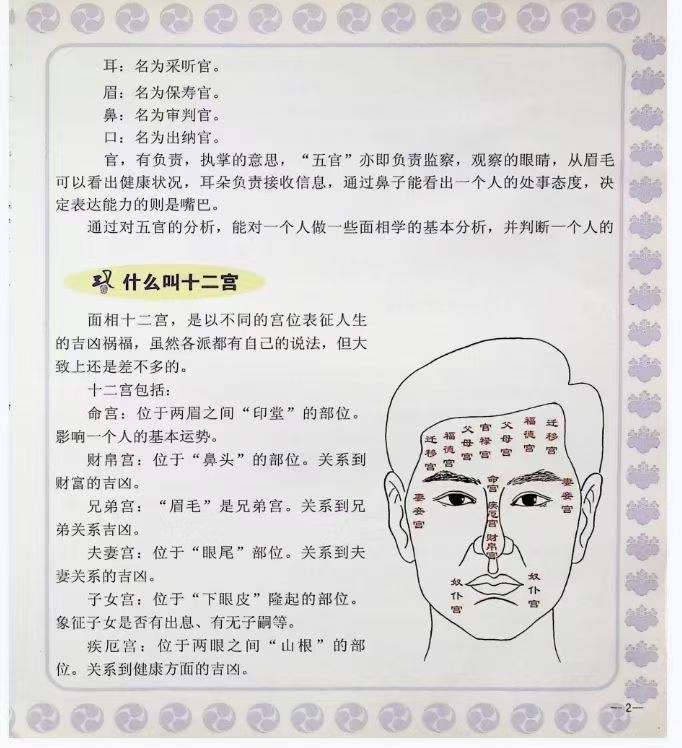 耳：名为采听官。
眉：名为保寿官。
鼻：名为审判官。
口：名为出纳官。
官，有负责，执掌的意思，“五官”亦即负责监察，观察的眼睛，从眉毛
可以看出健康状况，耳朵负责接收信息，通过鼻子能看出一个人的处事态度，决
定表达能力的则是嘴巴。
通过对五官的分析，能对一个人做一些面相学的基本分析，并判断一个人的
什么叫十二宫
面相十二宫，是以不同的宫位表征人生
的吉凶祸福，虽然各派都有自己的说法，但大
致上还是差不多的。
十二宫包括：
命宫：位于两眉之间“印堂”的部位。
影响一个人的基本运势。
财帛宫：位于“鼻头”的部位。关系到
财富的吉凶。
兄弟宫：“眉毛”是兄弟宫。关系到兄
弟关系吉凶。
夫妻宫：位于“眼尾”部位。关系到夫
妻关系的吉凶。
子女宫：位于“下眼皮”隆起的部位。
象征子女是否有出息、有无子嗣等。
疾厄宫：位于两眼之间“山根”的部
位。关系到健康方面的吉凶。
迁移宫
福德宫
父母宫
官禄宫
父母宫
福德宫
迁移宫
命宫
妻妾宫
疾厄宫
妻妾宫
财帛宫
奴仆宫
奴仆宫
—2—